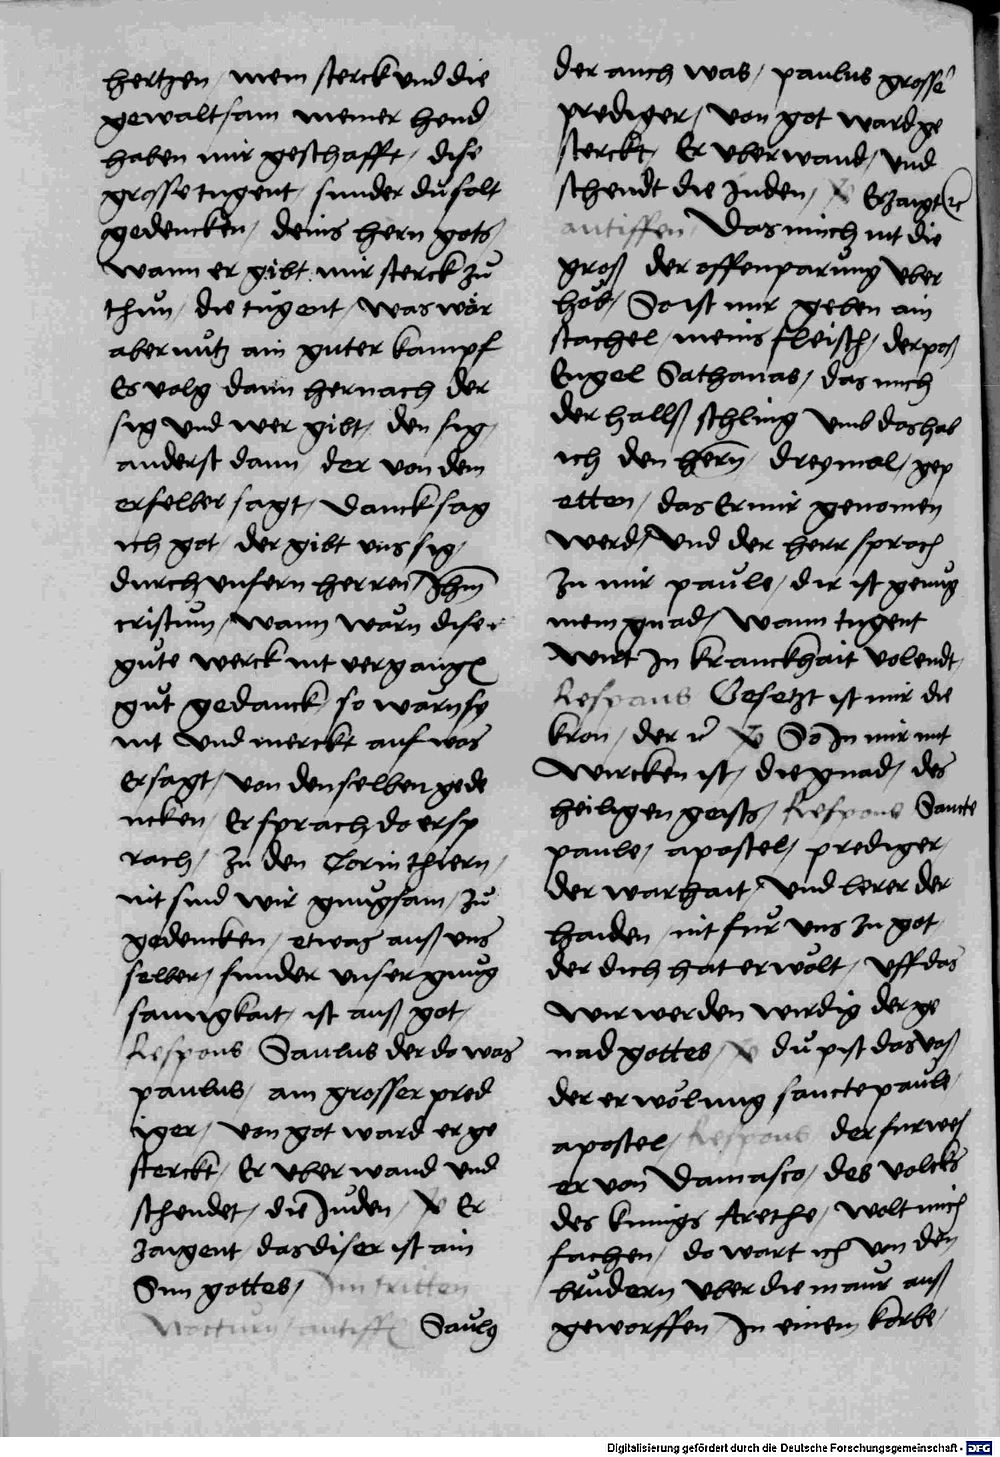 hertzen / mein sterck vnd die
gewaltsam meiner hend
haben mir geschafft / dise
grosse tugent / sunder du solt
gedencken / deins hern gots /
wann er gibt mir sterck zu
thun / die tugent / was wär
aber nutz ain guter kampf
Es volg dann hernach der
sig vnd wer gibt / den sig /
anderst dann der von dem
er selber sagt / Danck sag
ich got / der gibt vns sig /
durch vnsern herren Jhm
cristum / wann warn dise
gute werck nit vergangen
gut gedanck / so warn sy
nit vnd merckt auf was
er sagt / von denselben gede
ncken / Er sprach do er sp
rach / zu den Corinthiern /
nit sind wir gnugsam / zu
gedencken / etwas auß vns
selber / sunder vnser gnug
samigkait / ist auß got /
Respons Saulus der do was
paulus / ain grosser pred
iger / von got ward er ge
sterckt / Er vber wand vnd
schendet / die Juden / V Er
zaigent das diser ist ain
Sun gottes / Im tritten
Nocturn / antiff Saulus
der auch was / paulus grosse
prediger / von got ward ge
sterckt / Er vberwand / vnd
schendt die Juden / V Erzaigt
antiffen Das mich nit die
groß der offenparung vber
hub / So ist mir geben ain
stachel / meins fleisch / der poß
Engel Sathanas / das mich
der hallß schling vmb das hab
ich den hern / dreymal / gep
etten / das Er mir genomen
werd / vnd der herr sprach
zu mir paule / dir ist genug
mein gnad / wann tugent
wirt In kranckhait volendt /
Respons Gesetzt ist mir die
kron / der V So In mir mit
wircken ist / die gnad / des
heiligen geists / Respons Sancte
paule / apostel / prediger /
der warhait / vnd lerer der
haiden / nit fur vns zu got
der dich hat erwölt / vff das
wir werden wirdig der ge
nad gottes / V du pist das vaß
der erwölung sancte paule /
apostel / Respons der furwes
er von Damasco / des volcks
des kunigs Arethe / wolt mich
fachen / do wart ich von den
brudern vber die maur auß
geworffen In einem korbe /
Digitalisierung gefördert durch die Deutsche Forschungsgemeinschaft - DFG